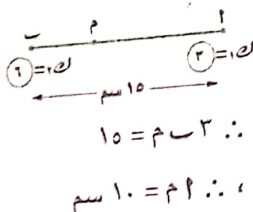 أ م ب
ك١=٣ ك٢=٦
١٥ سم
∴ ٣ ب م = ١٥
، ∴ أ م = ١٠ سم